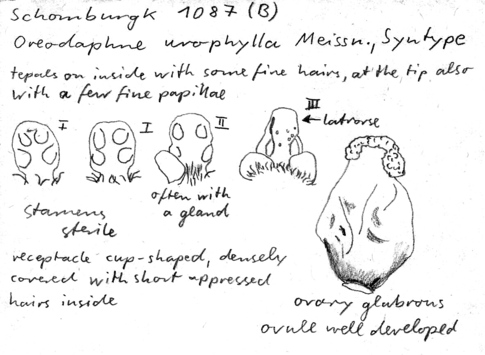 Schomburgk 1087 (B)
Oreodaphne urophylla Meissn., Syntype
tepals on inside with some fine hairs, at the tip also
with a few fine papillae
I
I
II
III
latrorse
often with
a gland
stamens
sterile
receptacle cup-shaped, densely
covered with short appressed
hairs inside
ovary glabrous
ovule well developed